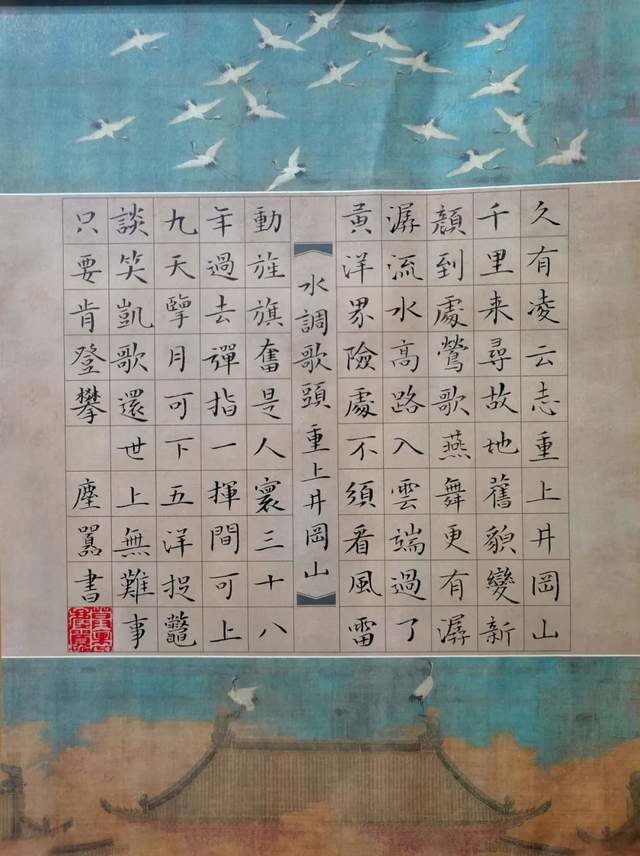 久有凌云志重上井岡山
千里来尋故地舊貌變新
顔到處鶯歌燕舞更有潺
潺流水高路入雲端過了
黃洋界險處不須看風雷
《水調歌頭 重上井岡山》
動旌旗奮是人寰三十八
年過去彈指一揮間可上
九天擥月可下五洋捉鼈
談笑凱歌還世上無難事
只要肯登攀 塵囂書